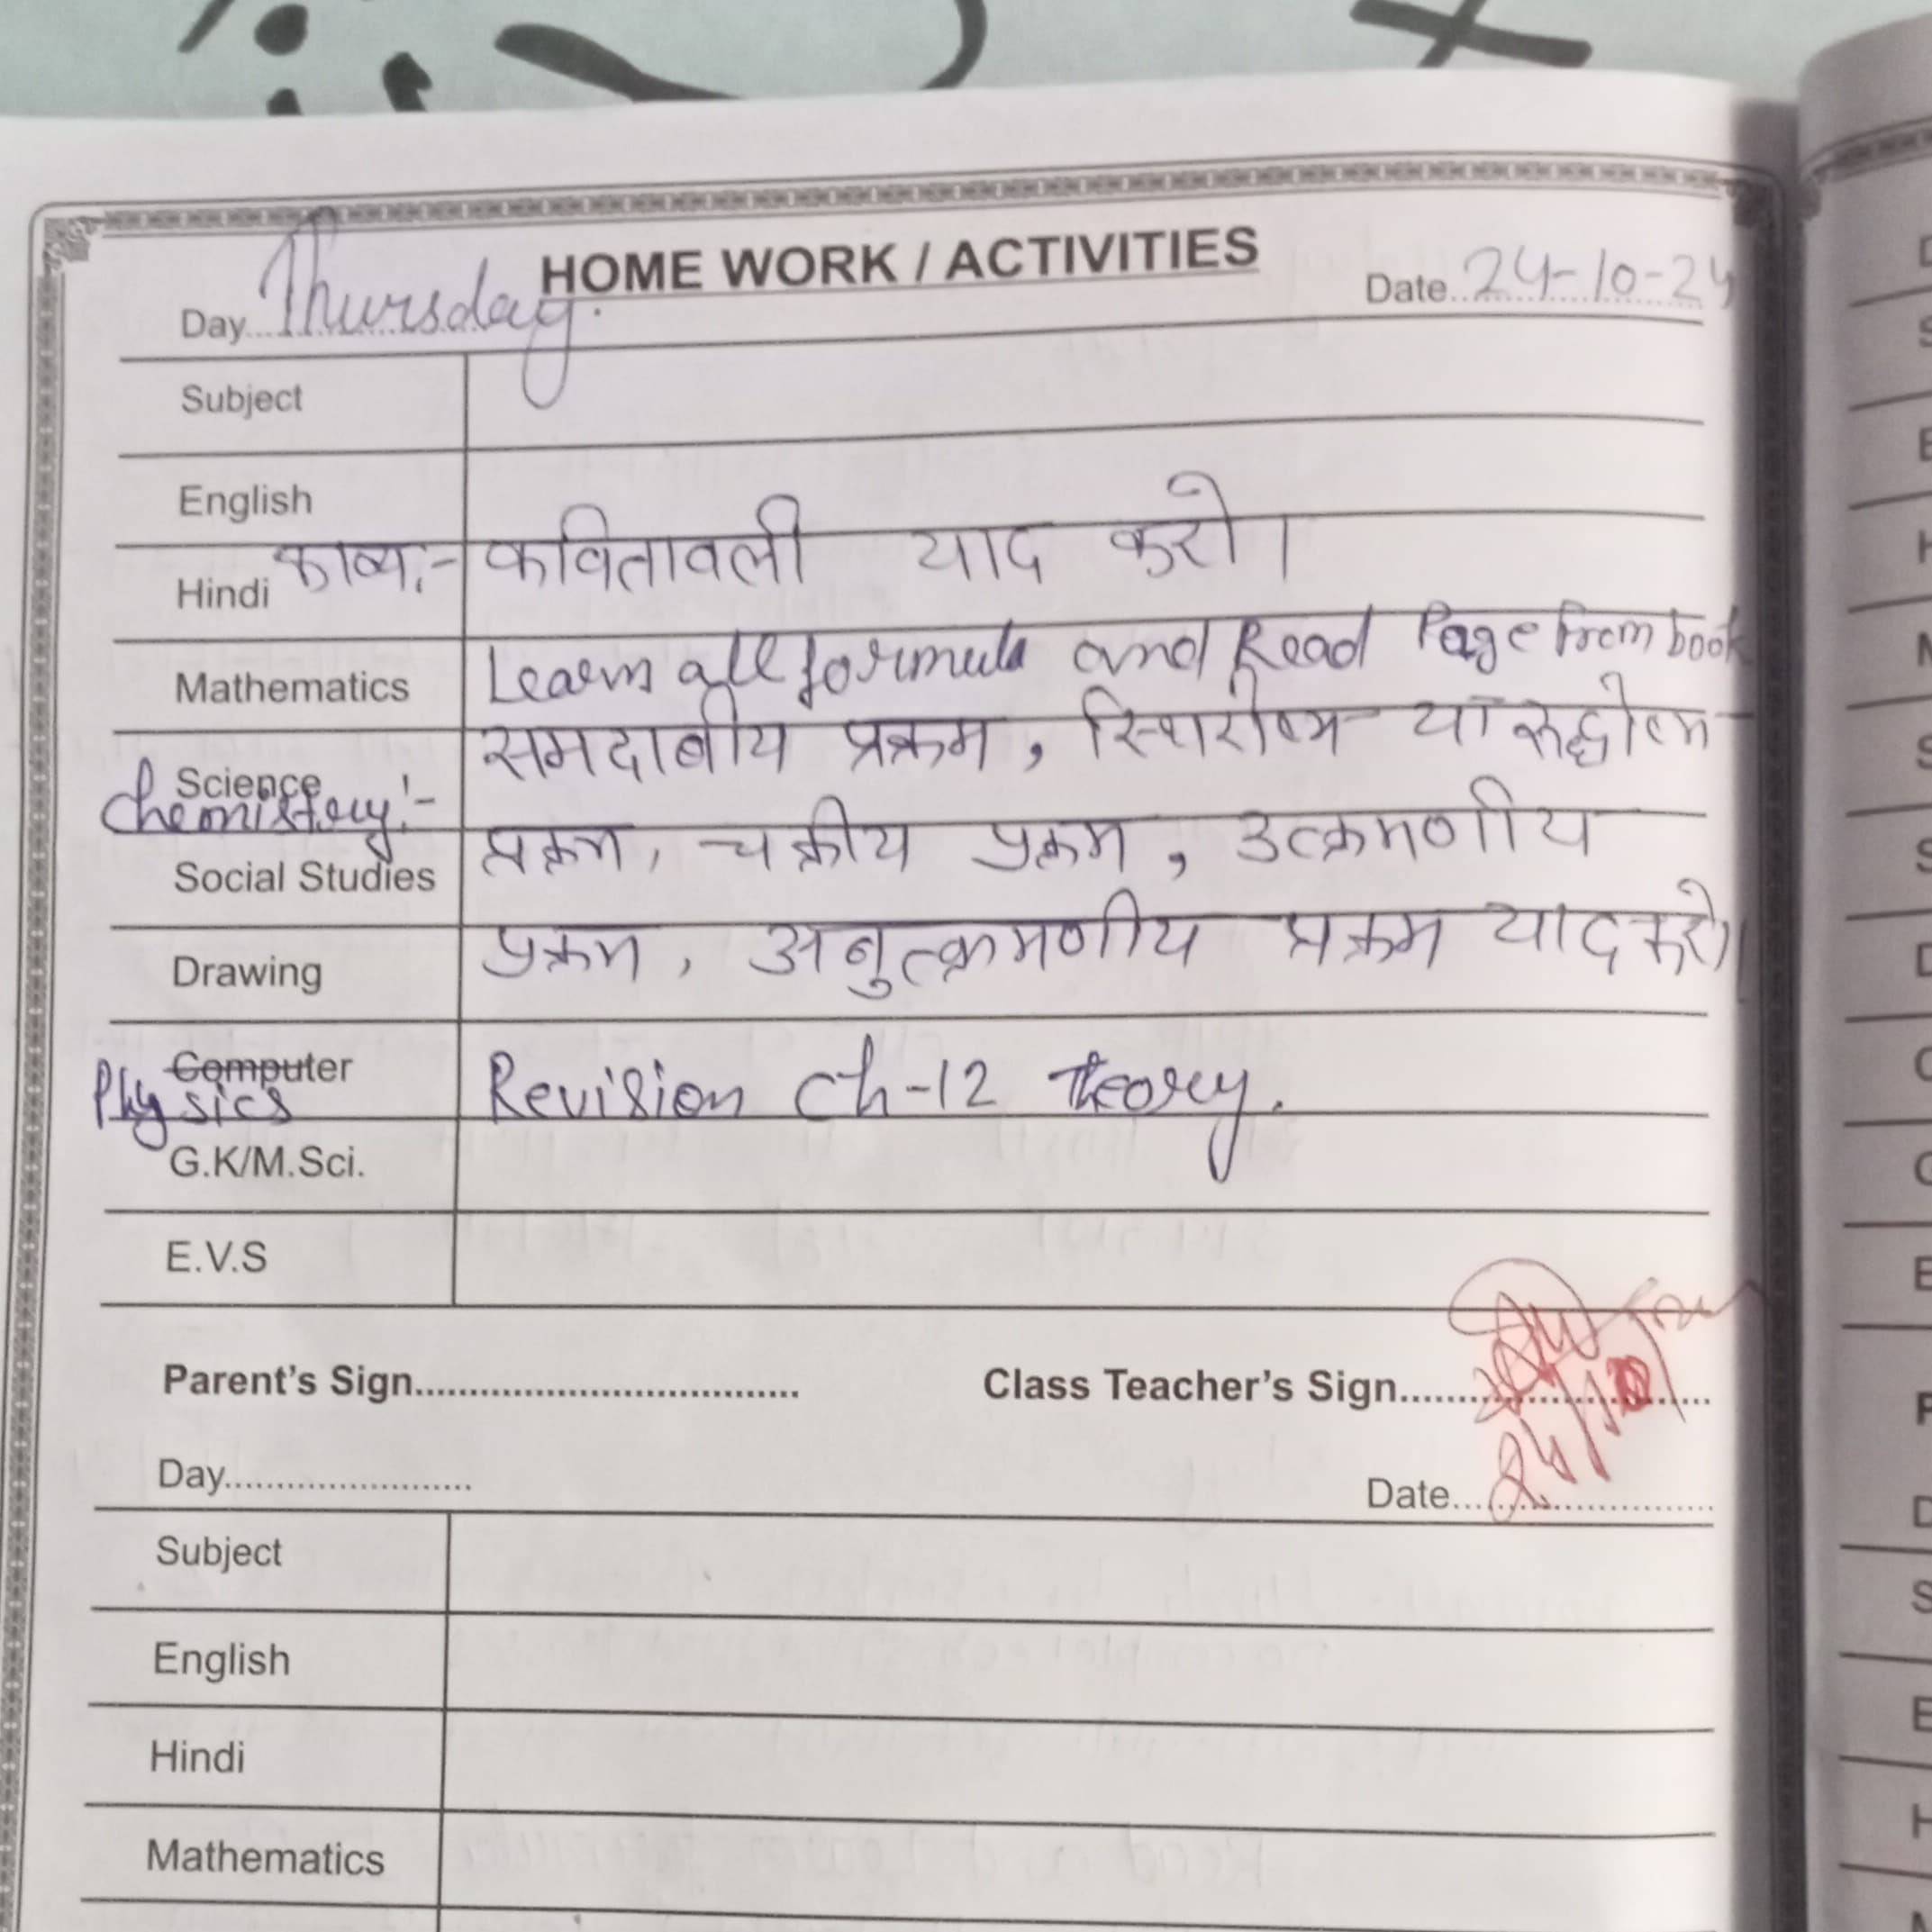 HOME WORK / ACTIVITIES
Day Thursday. Date 24-10-24
Subject
English
Hindi काव्य:- कवितावली याद करो।
Mathematics Learn all formula and Read Page from book
Science समदाबीय प्रक्रम, स्थिरोष्म या रूद्धोष्म
Chemistry:-
Social Studies प्रक्रम, चक्रीय प्रक्रम, उत्क्रमणीय
Drawing प्रक्रम, अनुत्क्रमणीय प्रक्रम याद करो।
Computer
Physics Revision Ch-12 theory.
G.K/M.Sci.
E.V.S
Parent's Sign Class Teacher's Sign
Day Date 24/10
Subject
English
Hindi
Mathematics